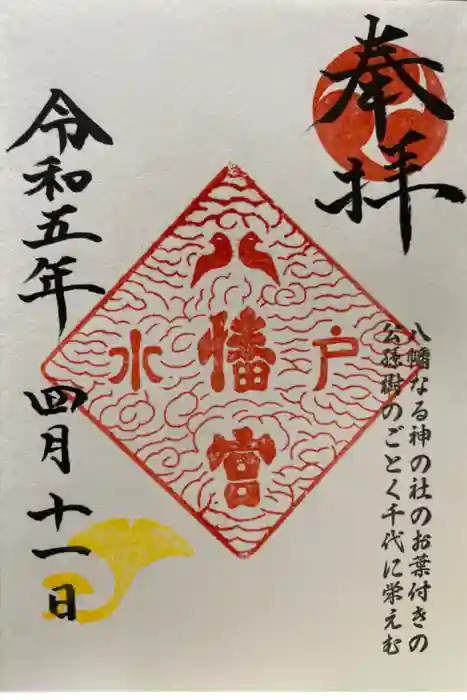 奉拝
八幡なる神の社のお葉付きの
公孫樹のごとく千代に栄えむ
水戸
八幡宮
令和五年 四月十一日